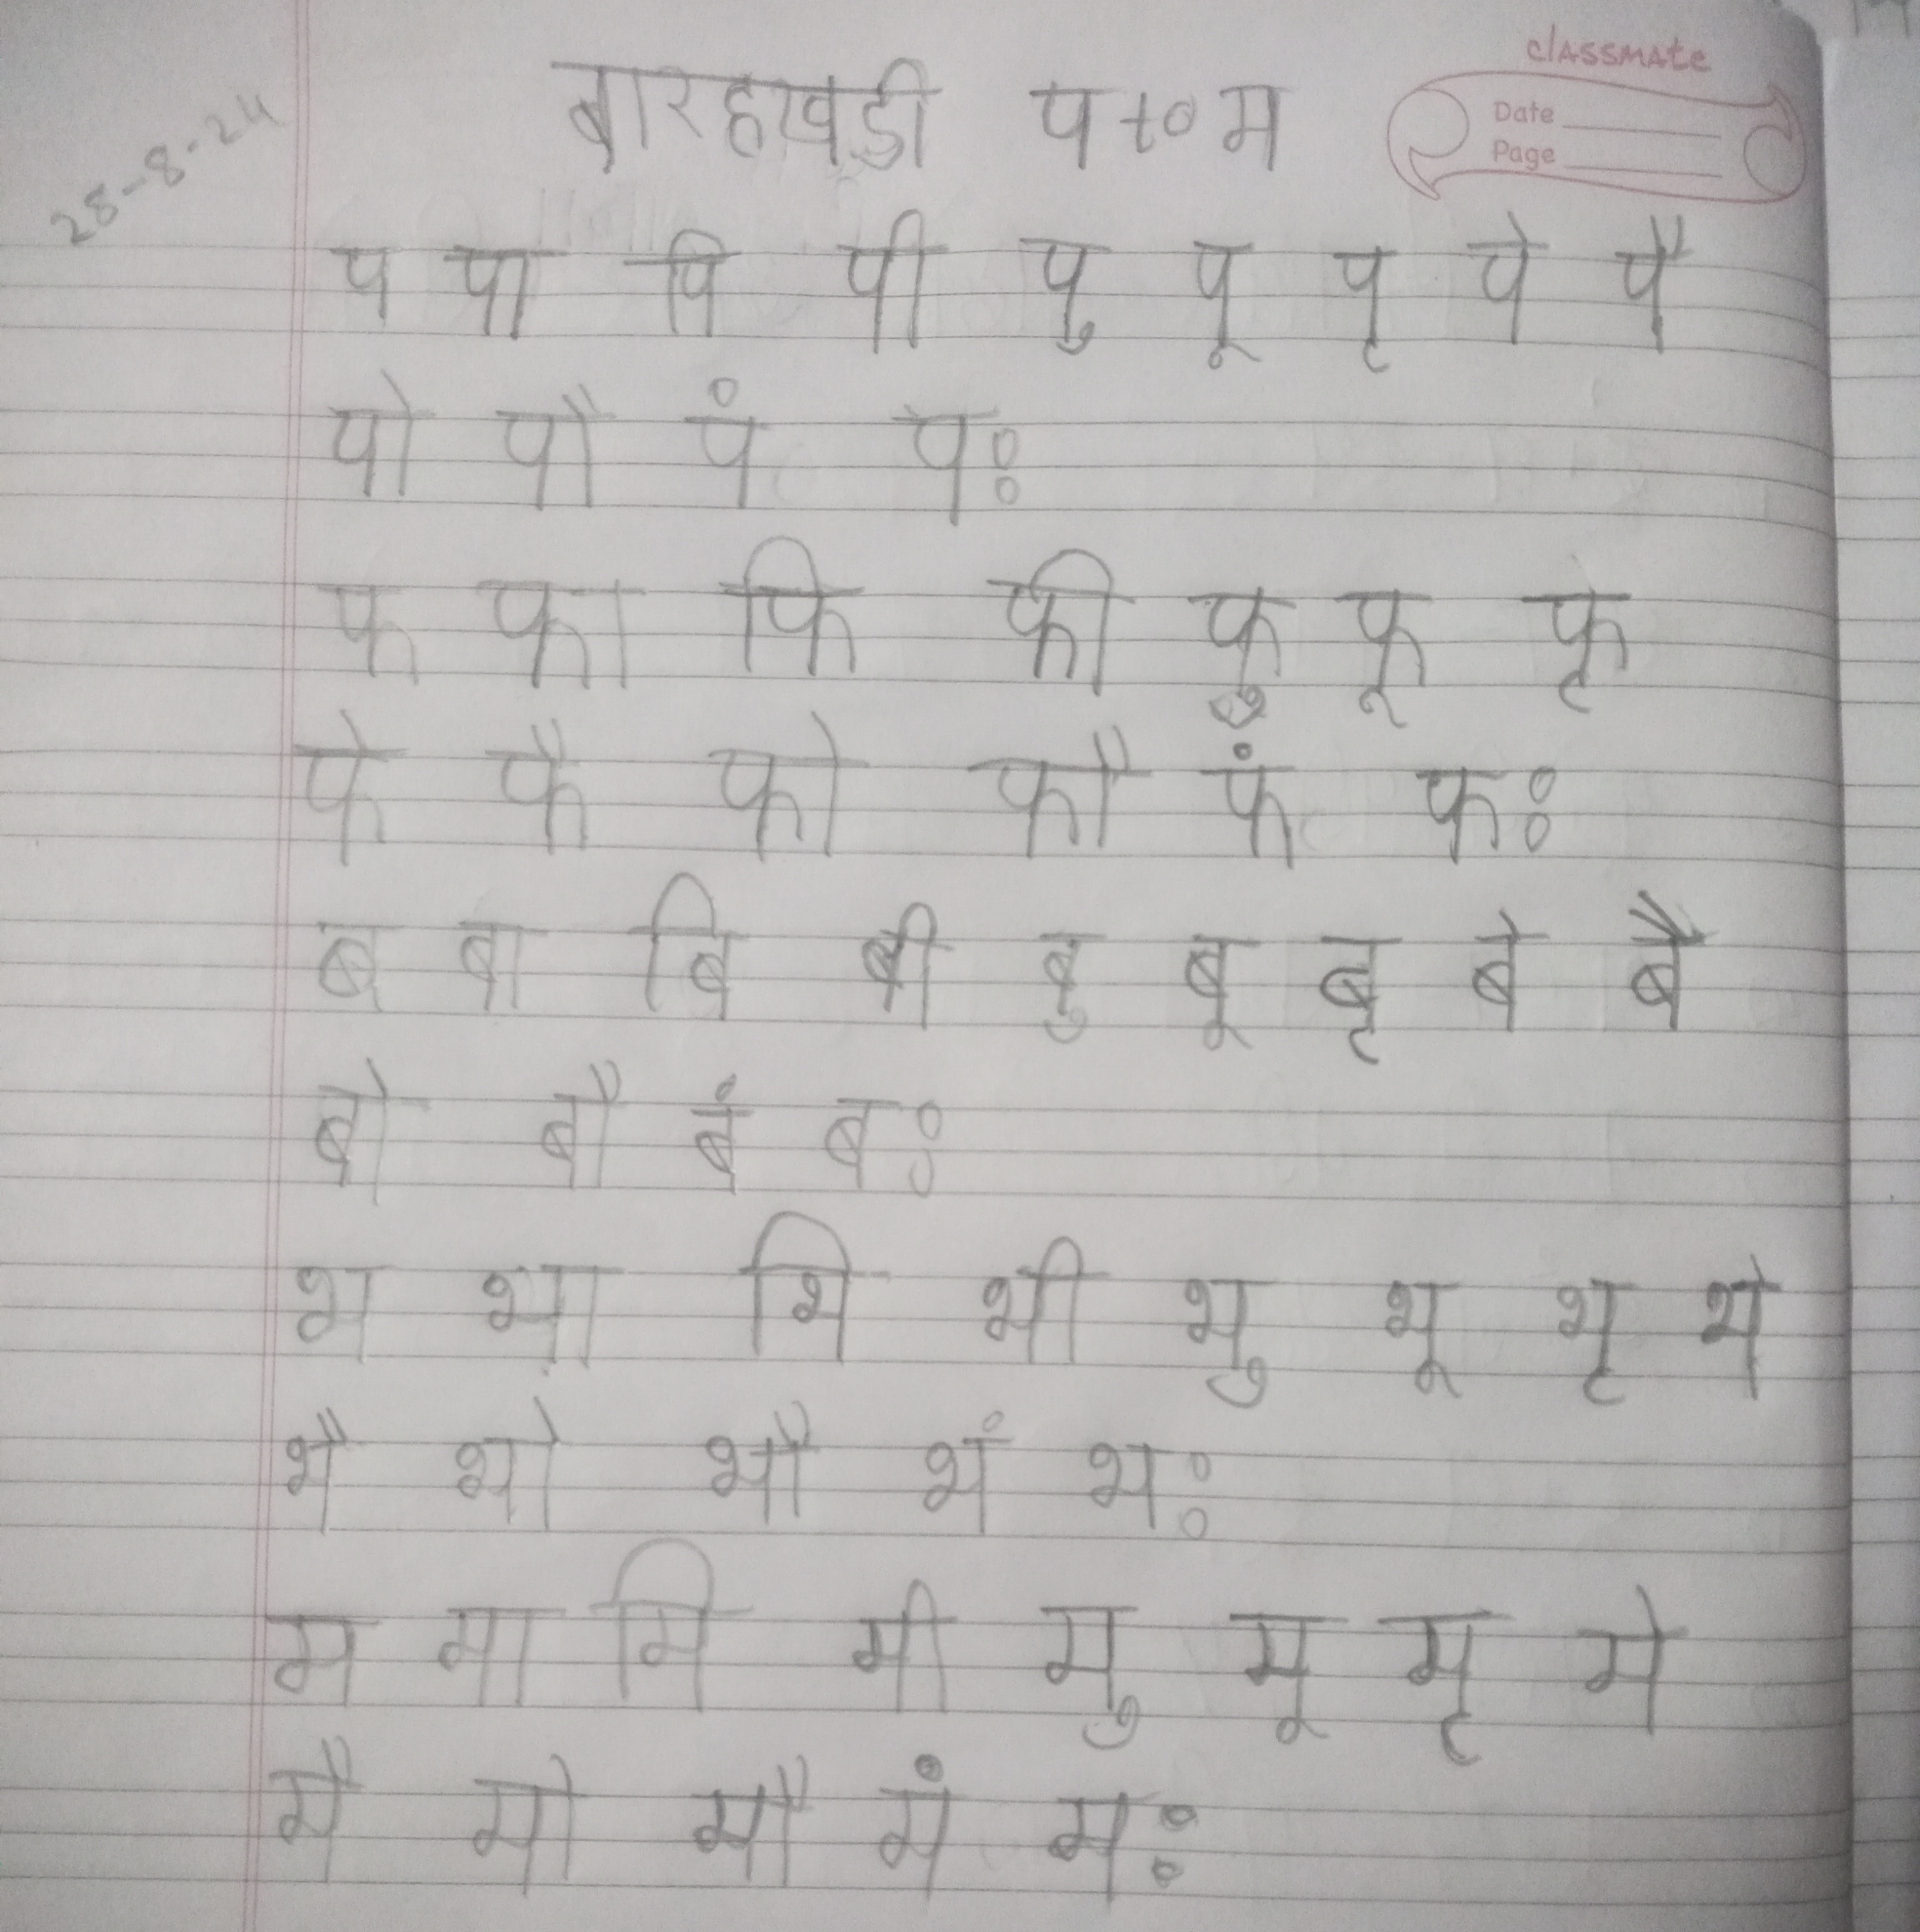 classmate
Date
Page
28-8-24
बारहखड़ी प to म
प पा पि पी पु पू पृ पे पै
पो पौ पं पः
फ फा फि फी फु फू फृ
फे फै फो फौ फं फः
ब बा बि बी बु बू बृ बे बै
बो बौ बं बः
भ भा भि भी भु भू भृ भे
भै भो भौ भं भः
म मा मि मी मु मू मृ मे
मै मो मौ मं मः